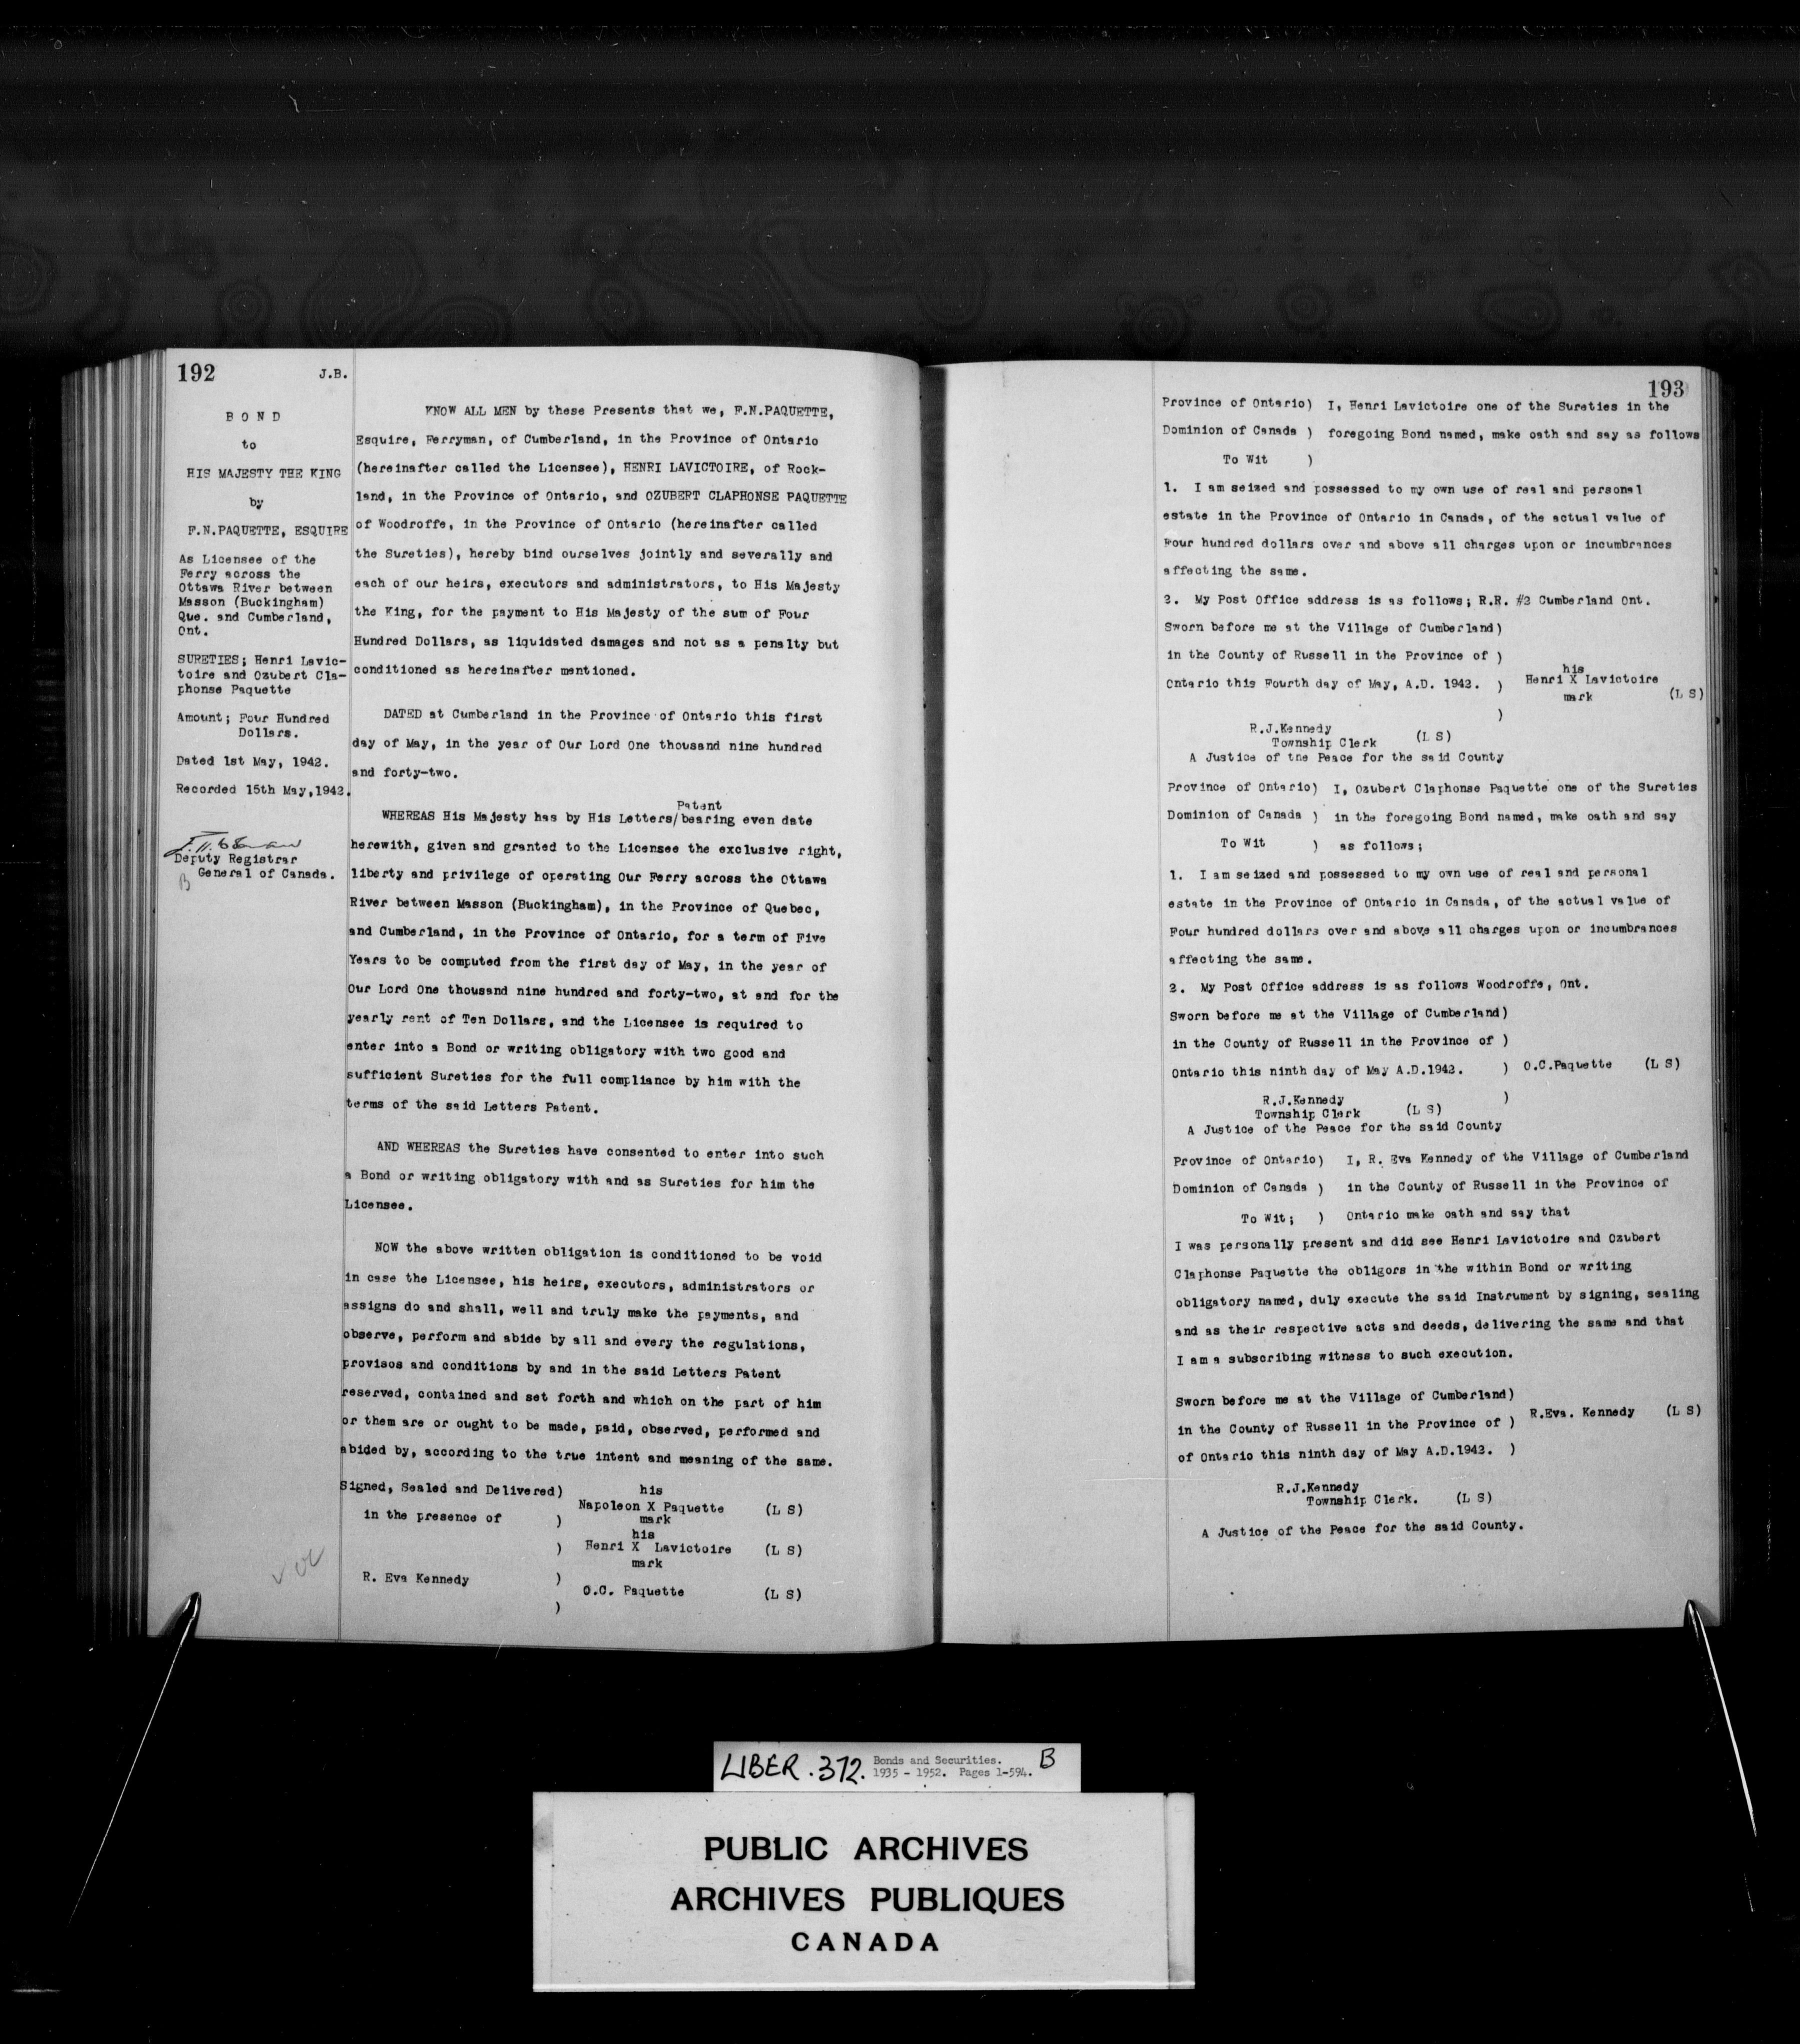 192
J.B.
B O N D
to
HIS MAJESTY THE KING
by
F.N.PAQUETTE, ESQUIRE
As Licensee of the
Ferry across the
Ottawa River between
Masson (Buckingham)
Que. and Cumberland,
Ont.
SURETIES; Henri Lavic-
toire and Ozubert Cla-
phonse Paquette
Amount; Four Hundred
Dollars.
Dated 1st May, 1942.
Recorded 15th May,1942.
Deputy Registrar
General of Canada.
B
KNOW ALL MEN by these Presents that we, F.N.PAQUETTE,
Esquire, Ferryman, of Cumberland, in the Province of Ontario
(hereinafter called the Licensee), HENRI LAVICTOIRE, of Rock-
land, in the Province of Ontario, and OZUBERT CLAPHONSE PAQUETTE
of Woodroffe, in the Province of Ontario (hereinafter called
the Sureties), hereby bind ourselves jointly and severally and
each of our heirs, executors and administrators, to His Majesty
the King, for the payment to His Majesty of the sum of Four
Hundred Dollars, as liquidated damages and not as a penalty but
conditioned as hereinafter mentioned.
DATED at Cumberland in the Province of Ontario this first
day of May, in the year of Our Lord One thousand nine hundred
and forty-two.
Patent
WHEREAS His Majesty has by His Letters/bearing even date
herewith, given and granted to the Licensee the exclusive right,
liberty and privilege of operating Our Ferry across the Ottawa
River between Masson (Buckingham), in the Province of Quebec,
and Cumberland, in the Province of Ontario, for a term of Five
Years to be computed from the first day of May, in the year of
Our Lord One thousand nine hundred and forty-two, at and for the
yearly rent of Ten Dollars, and the Licensee is required to
enter into a Bond or writing obligatory with two good and
sufficient Sureties for the full compliance by him with the
terms of the said Letters Patent.
AND WHEREAS the Sureties have consented to enter into such
a Bond or writing obligatory with and as Sureties for him the
Licensee.
NOW the above written obligation is conditioned to be void
in case the Licensee, his heirs, executors, administrators or
assigns do and shall, well and truly make the payments, and
observe, perform and abide by all and every the regulations,
provisos and conditions by and in the said Letters Patent
reserved, contained and set forth and which on the part of him
or them are or ought to be made, paid, observed, performed and
abided by, according to the true intent and meaning of the same.
Signed, Sealed and Delivered) his
Napoleon X Paquette (L S)
in the presence of ) mark
his
) Henri X Lavictoire (L S)
mark
R. Eva Kennedy )
O.C. Paquette (L S)
)
193
Province of Ontario) I, Henri Lavictoire one of the Sureties in the
Dominion of Canada ) foregoing Bond named, make oath and say as follows
To Wit )
1. I am seized and possessed to my own use of real and personal
estate in the Province of Ontario in Canada, of the actual value of
Four hundred dollars over and above all charges upon or incumbrances
affecting the same.
2. My Post Office address is as follows; R.R. #2 Cumberland Ont.
Sworn before me at the Village of Cumberland)
in the County of Russell in the Province of )
his
Ontario this Fourth day of May, A.D. 1942. ) Henri X Lavictoire
mark (L S)
)
R.J.Kennedy
Township Clerk (L S)
A Justice of the Peace for the said County
Province of Ontario) I, Ozubert Claphonse Paquette one of the Sureties
Dominion of Canada ) in the foregoing Bond named, make oath and say
To Wit ) as follows;
1. I am seized and possessed to my own use of real and personal
estate in the Province of Ontario in Canada, of the actual value of
Four hundred dollars over and above all charges upon or incumbrances
affecting the same.
2. My Post Office address is as follows Woodroffe, Ont.
Sworn before me at the Village of Cumberland)
in the County of Russell in the Province of )
Ontario this ninth day of May A.D.1942. ) O.C.Paquette (L S)
R.J.Kennedy )
Township Clerk (L S)
A Justice of the Peace for the said County
Province of Ontario) I, R. Eva Kennedy of the Village of Cumberland
Dominion of Canada ) in the County of Russell in the Province of
To Wit; ) Ontario make oath and say that
I was personally present and did see Henri Lavictoire and Ozubert
Claphonse Paquette the obligors in the within Bond or writing
obligatory named, duly execute the said Instrument by signing, sealing
and as their respective acts and deeds, delivering the same and that
I am a subscribing witness to such execution.
Sworn before me at the Village of Cumberland)
in the County of Russell in the Province of ) R.Eva. Kennedy (L S)
of Ontario this ninth day of May A.D.1942. )
R.J.Kennedy
Township Clerk. (L S)
A Justice of the Peace for the said County.
LIBER.372. Bonds and Securities. B
1935 - 1952. Pages 1-594.
PUBLIC ARCHIVES
ARCHIVES PUBLIQUES
CANADA